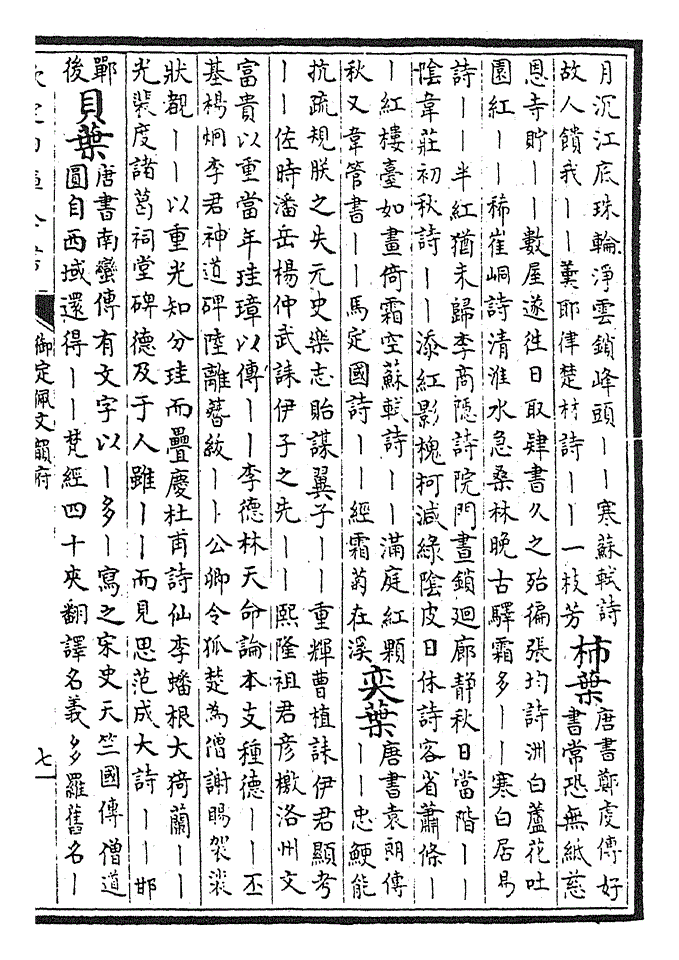 月沉江底珠輪淨雲鎖峰頭丨丨寒蘇軾詩
故人饋我丨丨羹耶律楚材詩丨丨一枝芳
柿葉
唐書鄭虔傳好
書常恐無紙慈
恩寺貯丨丨數屋遂徃日取肆書久之殆徧張均詩洲白蘆花吐
園紅丨丨稀崔峒詩清淮水急桑林晚古驛霜多丨丨寒白居易
詩丨丨半紅猶未歸李商隱詩院門晝鎖廻廊靜秋日當階丨丨
陰韋莊初秋詩丨丨添紅影槐柯減綠陰皮日休詩客省蕭條丨
丨紅樓臺如畫倚霜空蘇軾詩丨丨滿庭紅顆
秋又韋管書丨丨馬定國詩丨丨經霜菊在溪
奕葉
唐書袁朗傳
丨丨忠鯁能
抗疏規朕之失元史樂志貽謀翼子丨丨重輝曹植誄伊君顯考
丨丨佐時潘岳楊仲武誄伊子之先丨丨熙隆祖君彦檄洛州文
富貴以重當年珪璋以傳丨丨李德林天命論本支種德丨丨丕
基楊炯李君神道碑陸離簪紱丨丨公卿令狐楚為僧謝賜袈裟
狀覩丨丨以重光知分珪而疊慶杜甫詩仙李蟠根大猗蘭丨丨
光裴度諸葛祠堂碑德及于人雖丨丨而見思范成大詩丨丨邯
鄲
後
貝葉
唐書南蠻傳有文字以丨多丨寫之宋史天竺國傳僧道
圓自西域還得丨丨梵經四十夾翻譯名義多羅舊名丨
御定佩文韻府
七